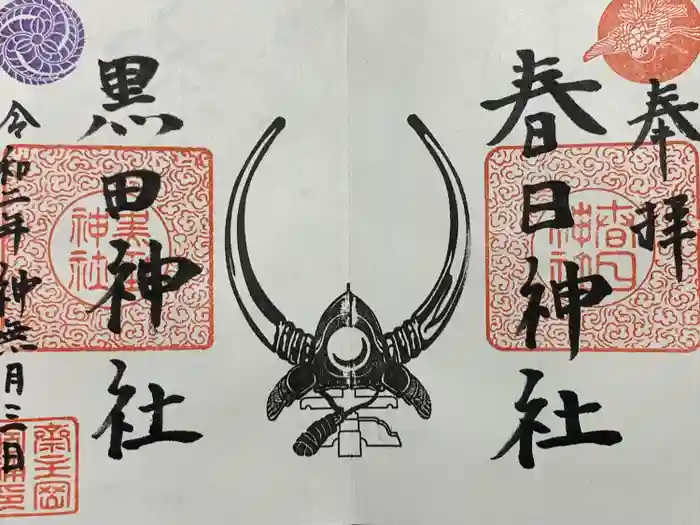 奉拝
春日神社
春日神社
黒田神社
黒田神社
令和二年 神無月三日